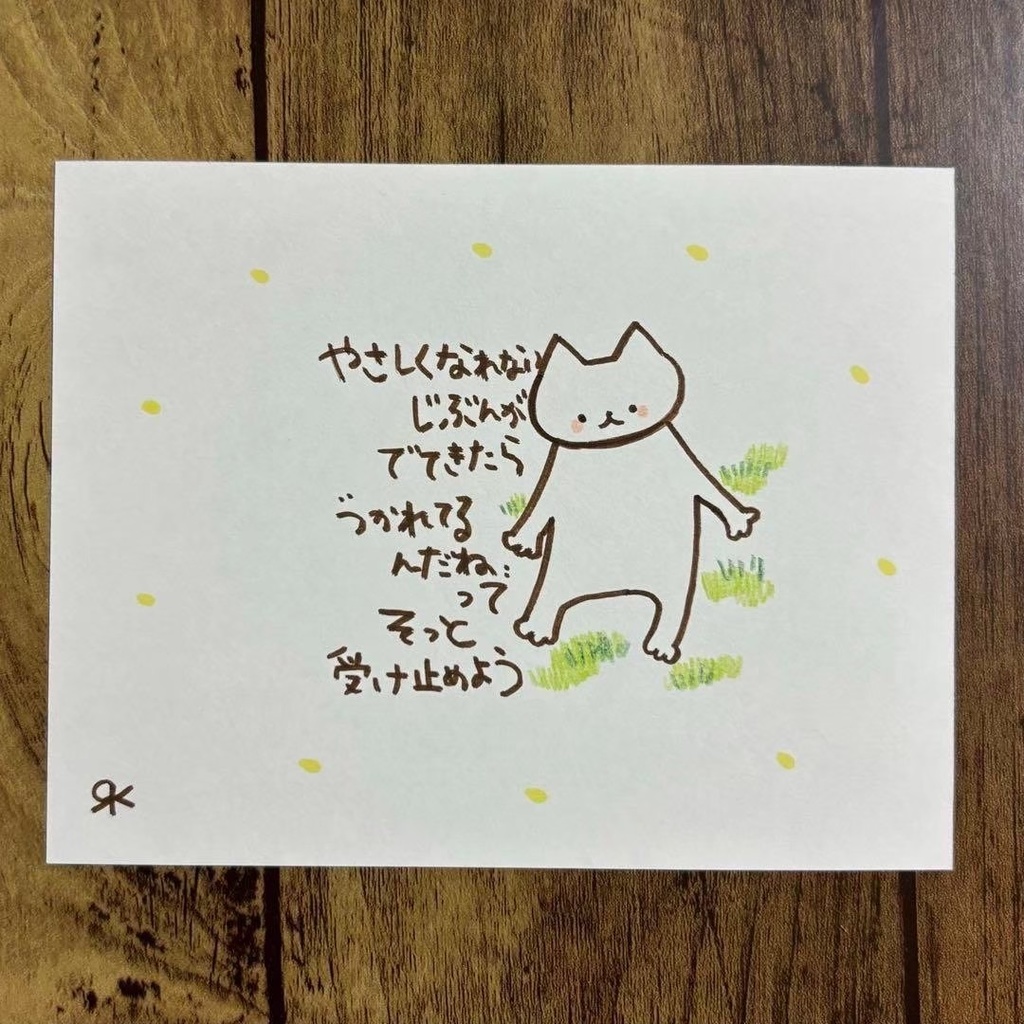 やさしくなれない
じぶんが
でてきたら
〝つかれてる
んだね〟
って
そっと
受け止めよう